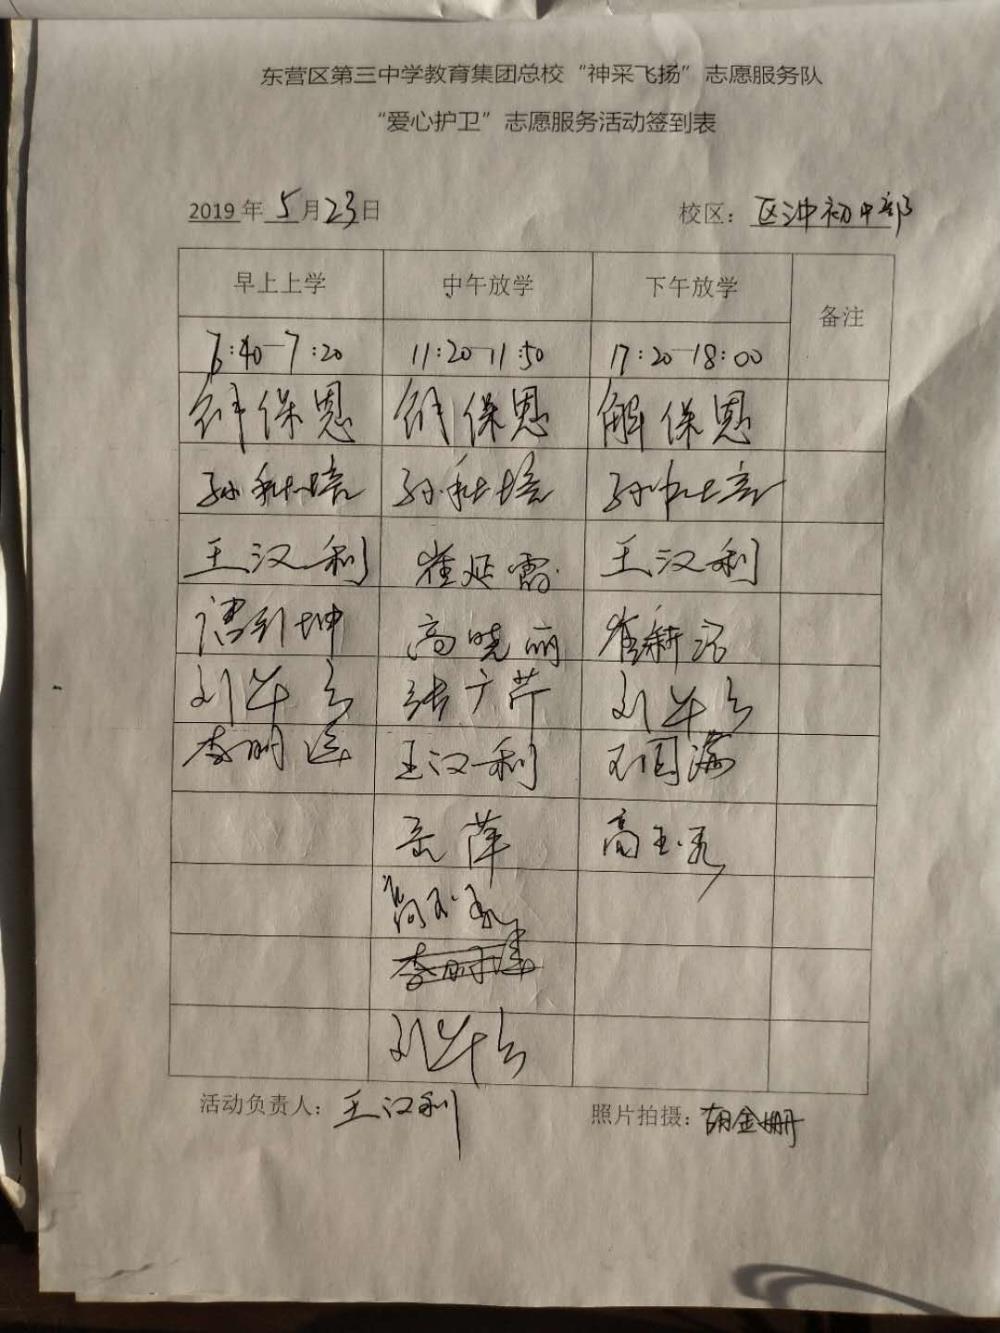 东营区第三中学教育集团总校“神采飞扬”志愿服务队
“爱心护卫”志愿服务活动签到表
2019年 5月23日 校区：初中部
早上上学 中午放学 下午放学 备注
6:40-7:20 11:20-11:50 17:20-18:00
解保恩 解保恩 解保恩
孙秋培 孙秋培 孙秋培
王汉利 崔延霞 王汉利
坤 高晓丽 崔新
刘华云 张广芹 刘华云
李明 王汉利 石国海
岳萍 高玉
高玉
李明
刘华云
活动负责人：王汉利 照片拍摄：胡金珊